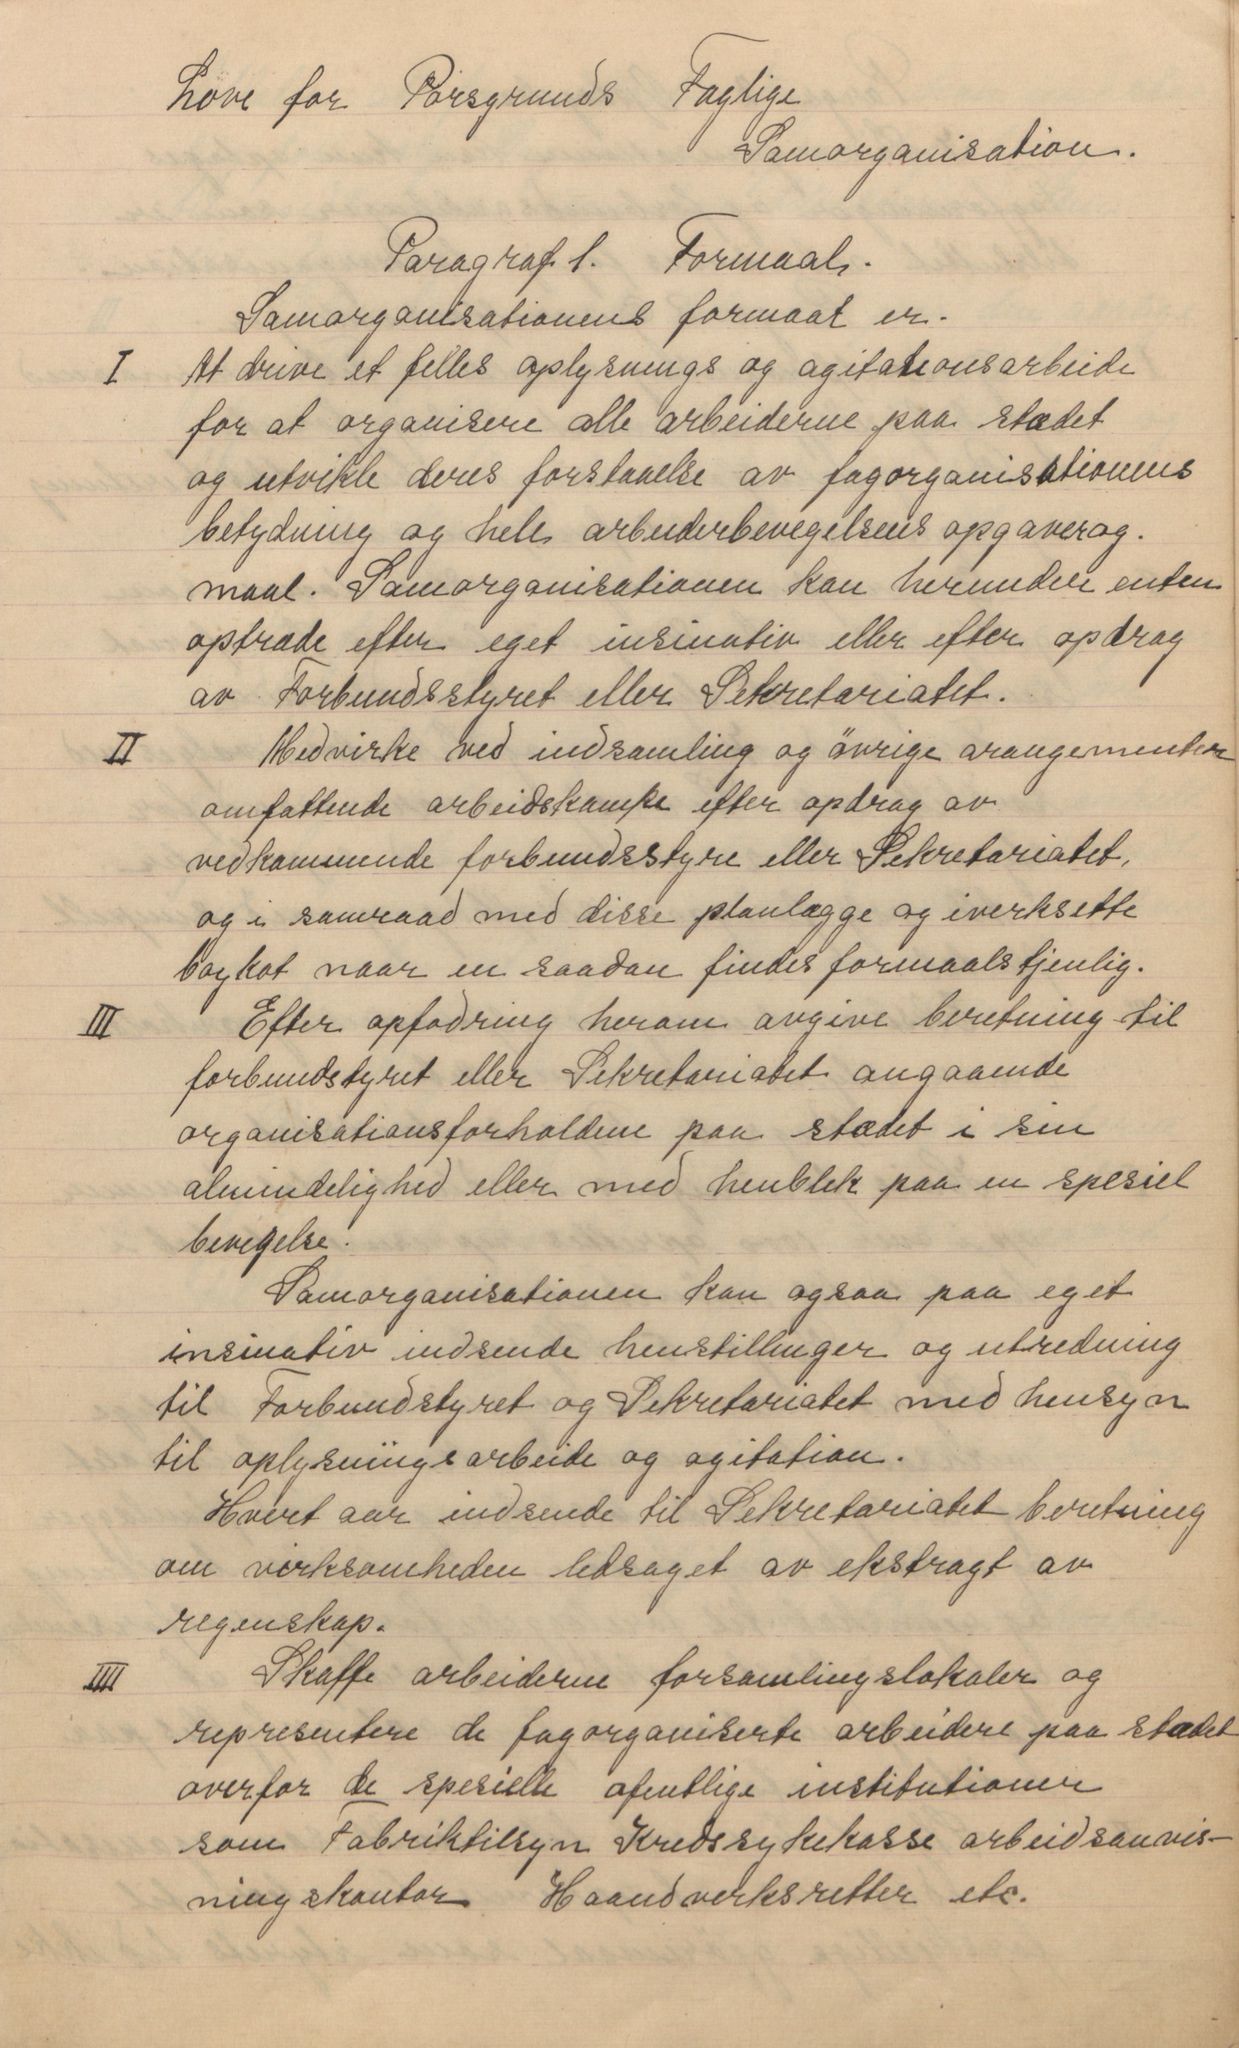 Love for Porsgrunds Faglige
Samorganisation.
Paragraf 1. Formaal.
Samorganisationens formaal er.
I At drive et felles oplysnings og agitationsarbeide
for at organisere alle arbeiderne paa stædet
og utvikle deres forstaaelse av fagorganisationens
betydning og hele arbeiderbevegelsens opgaver og.
maal. Samorganisationen kan herunder enten
optræde efter eget insinativ eller efter opdrag
av Forbundsstyret eller Sekretariatet.
II Medvirke ved indsamling og övrige arangementer
omfattende arbeidskampe efter opdrag av
vedkommende forbundsstyre eller Sekretariatet,
og i samraad med disse planlægge og iverksette
boykot naar en saadan findes formaalstjenlig.
III Efter opfodring herom avgive beretning til
forbundstyret eller Sekretariatet angaaende
organisationsforholdene paa stædet i sin
almindelighed eller med henblik paa en spesiel
bevegelse.
Samorganisationen kan ogsaa paa eget
insinativ indsende henstillinger og utredning
til Forbundstyret og Sekretariatet med hensyn
til oplysningsarbeide og agitation.
Hvert aar indsende til Sekretariatet beretning
om virksomheden ledsaget av ekstragt av
regenskap.
IIII Skaffe arbeiderne forsamlingslokaler og
representere de fagorganiserte arbeidere paa stædet
overfor de spesielle ofentlige institutioner
som Fabriktilsyn Kredssykekasse arbeidsanvis-
ningskontor Haandverksretter etc.